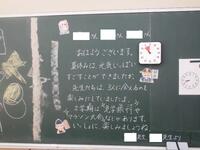 さん さん
おはようございます。
夏休みは、元気いっぱい
すごすことができましたか。
先生たちは、3人に会えるのを
楽しみにしていましたよ。
2学期は、見学旅行や
マラソン大会などがあります。
いっしょに、楽しみましょうね。
先生 先生より